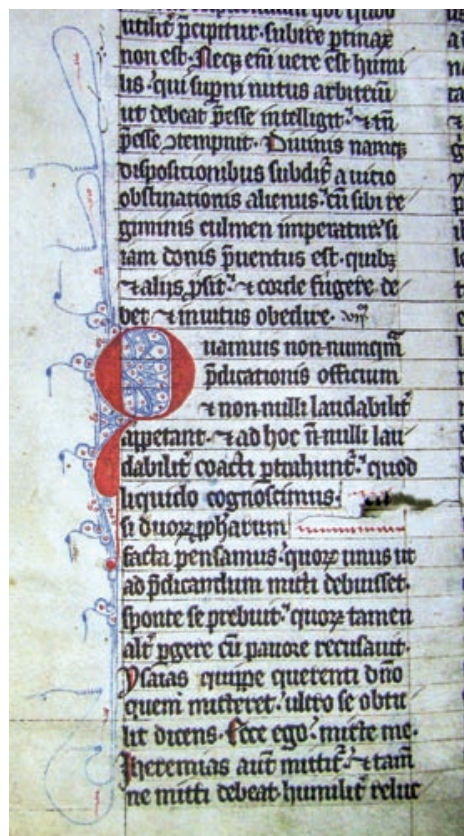 utilit̃ p̃cipitur· subire ꝑtinax
non est· Neqꝫ eni͂ uere est humi
lis · qui sup̃ni nutus arbit̾iu͂
ut debeat p̃esse intelligit · ⁊ tn͂
p̃esse ꝯtempnit· Diuinis namqꝫ
dispositionibus subdit᷒ a uitio
obstinationis alienus · cu͂ sibi re
giminis culmen imperatur si
iam donis p̃uentus est· quibꝫ
⁊ alijs ꝓsit · ⁊ corde fugere de
bet ⁊ inuitus obedire· vij͂
Quamuis non-numqm͂
p̃dicationis officium
⁊ non-nulli laudabilit̃
appetant· ⁊ ad hoc n͂-nulli lau
dabilit̃ coacti ꝑtrahunt᷒· quod
liquido cognoscimus·
si duoꝝ ꝓpharum
facta pensamus · quoꝝ unus ut
ad p̃dicandum mitti debuisset·
sponte se prebuit · quoꝝ tamen
alt̃ ꝑgere cu͂ pauore recusauit·
Ysaias quippe querenti dn͂o
quem mitteret · ultro se obtu
lit dicens· Ecce ego · mitte me·
Jheremias aut͂ mittit᷒· ⁊ tam͂
ne mitti debeat· humilit̃ reluc